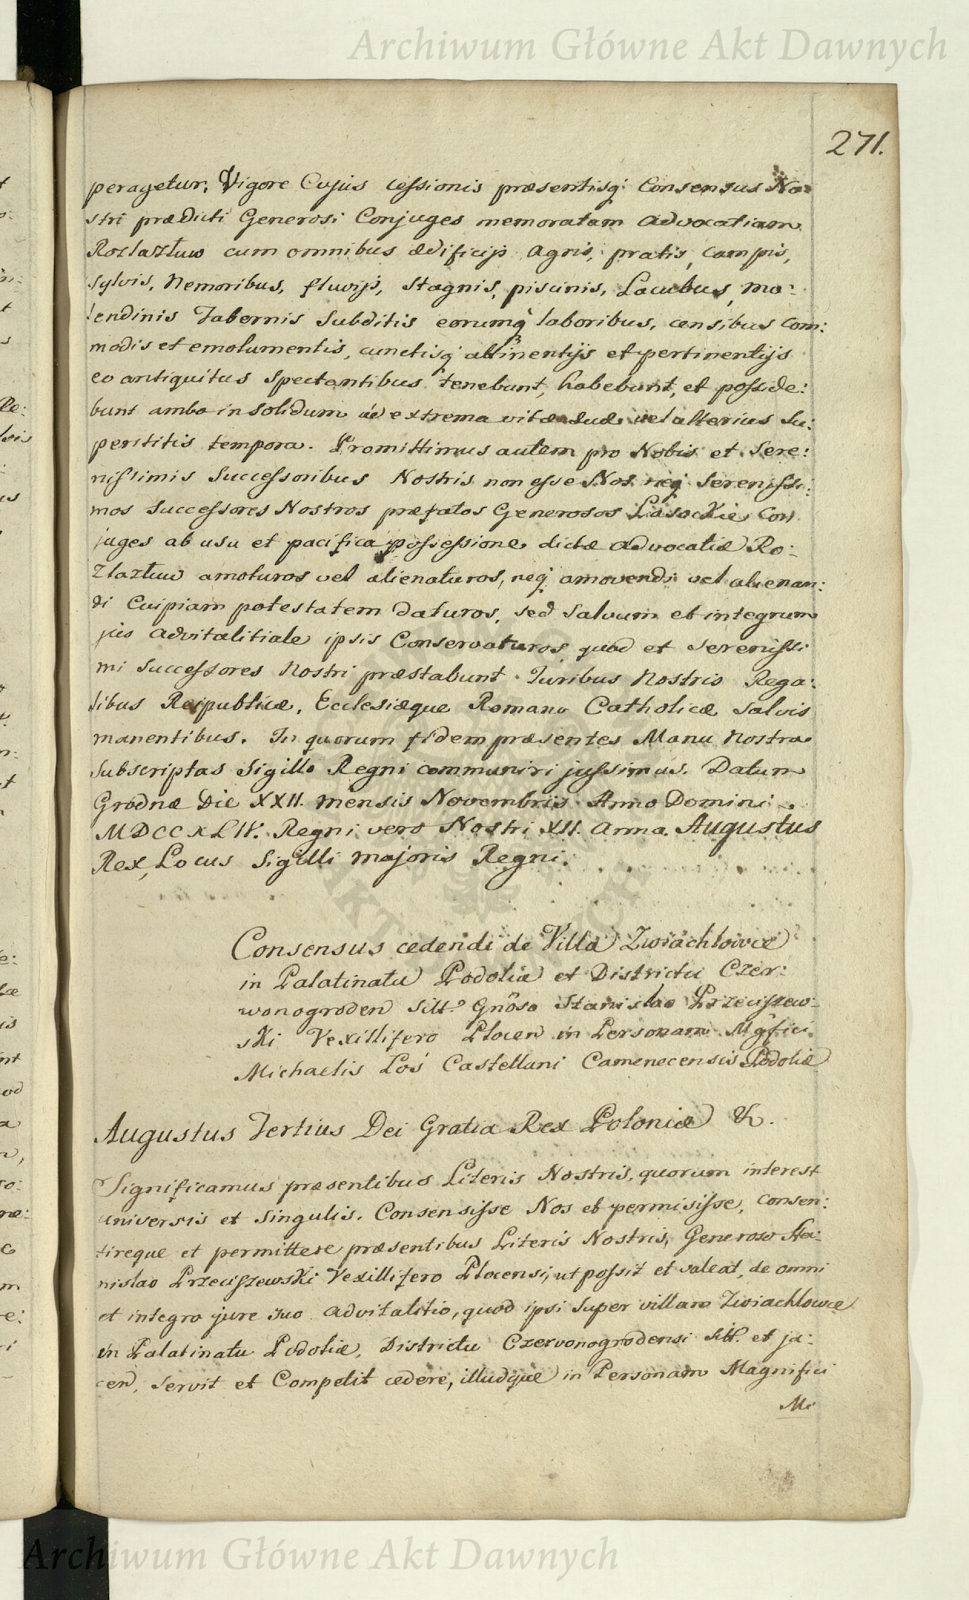 Archiwum Główne Akt Dawnych
271.
peragetur, Vigore Cujus cessionis præsentisq; Consensus No=
stri prædicti Generosi Conjuges memoratam advocatiam
Rozlaztuw cum omnibus ædificijs agris, pratis, campis,
sylvis, Nemoribus, fluvijs, stagnis, piscinis, Lacubus, mo:
lendinis Tabernis Subditis eorumq; laboribus, censibus Com:
modis et emolumentis, cunctisq; attinentijs et pertinentijs
eo antiquitus Spectantibus tenebunt, habebunt, et posside:
bunt ambo in solidum ad extrema vitæ suæ vel alterius Su:
perstitis tempora. Promittimus autem pro Nobis et Sere:
nissimis Successoribus Nostris non esse Nos neq; Serenissi:
mos Successores Nostros præfatos Generosos Lasockie Con
juges ab usu et pacifica possessione dictæ advocatiæ Ro:
zlaztuw amoturos vel alienaturos, neq; amovendi vel alienan:
di Cuipiam potestatem Daturos, sed salvum et integrum
jus advitalitiale ipsis Conservaturos, quod et Serenissi
mi Successores Nostri præstabunt. Juribus Nostris Rega:
libus Reipublicæ, Ecclesiæque Romano Catholicæ Salvis
manentibus. In quorum fidem præsentes Manu Nostra
Subscriptas Sigillo Regni communiri jussimus. Datum
Grodnæ Die XXII. mensis Novembris Anno Domini
MDCCXLIV. Regni vero Nostri XII. Anno. Augustus
Rex, Locus Sigilli majoris Regni.
Consensus cedendi de Villa Zwiachlowce
in Palatinatu Podoliæ et Districtu Czer:
wonogroden sitt.° Gnoso Stanislao Przeciszew:
ski Vexillifero Plocen in Personam Mgfici
Michaelis Łoś Castellani Camenecensis Podoliæ
Augustus Tertius Dei Gratia Rex Poloniæ &.
Significamus præsentibus Literis Nostris, quorum interest
universis et singulis. Consensisse Nos et permisisse, consen:
tireque et permittere præsentibus Literis Nostris, Generoso Sta:
nislao Przeciszewski Vexillifero Plocensi, ut possit et valeat, de omni
et integro jure suo advitalitio, quod ipsi super villam Zwiachlowce
in Palatinatu Podoliæ, Districtu Czerwonogrodensi sitt. et ja:
cen, servit et Competit cedere, illudque in Personam Magnifici
Mi
Archiwum Główne Akt Dawnych